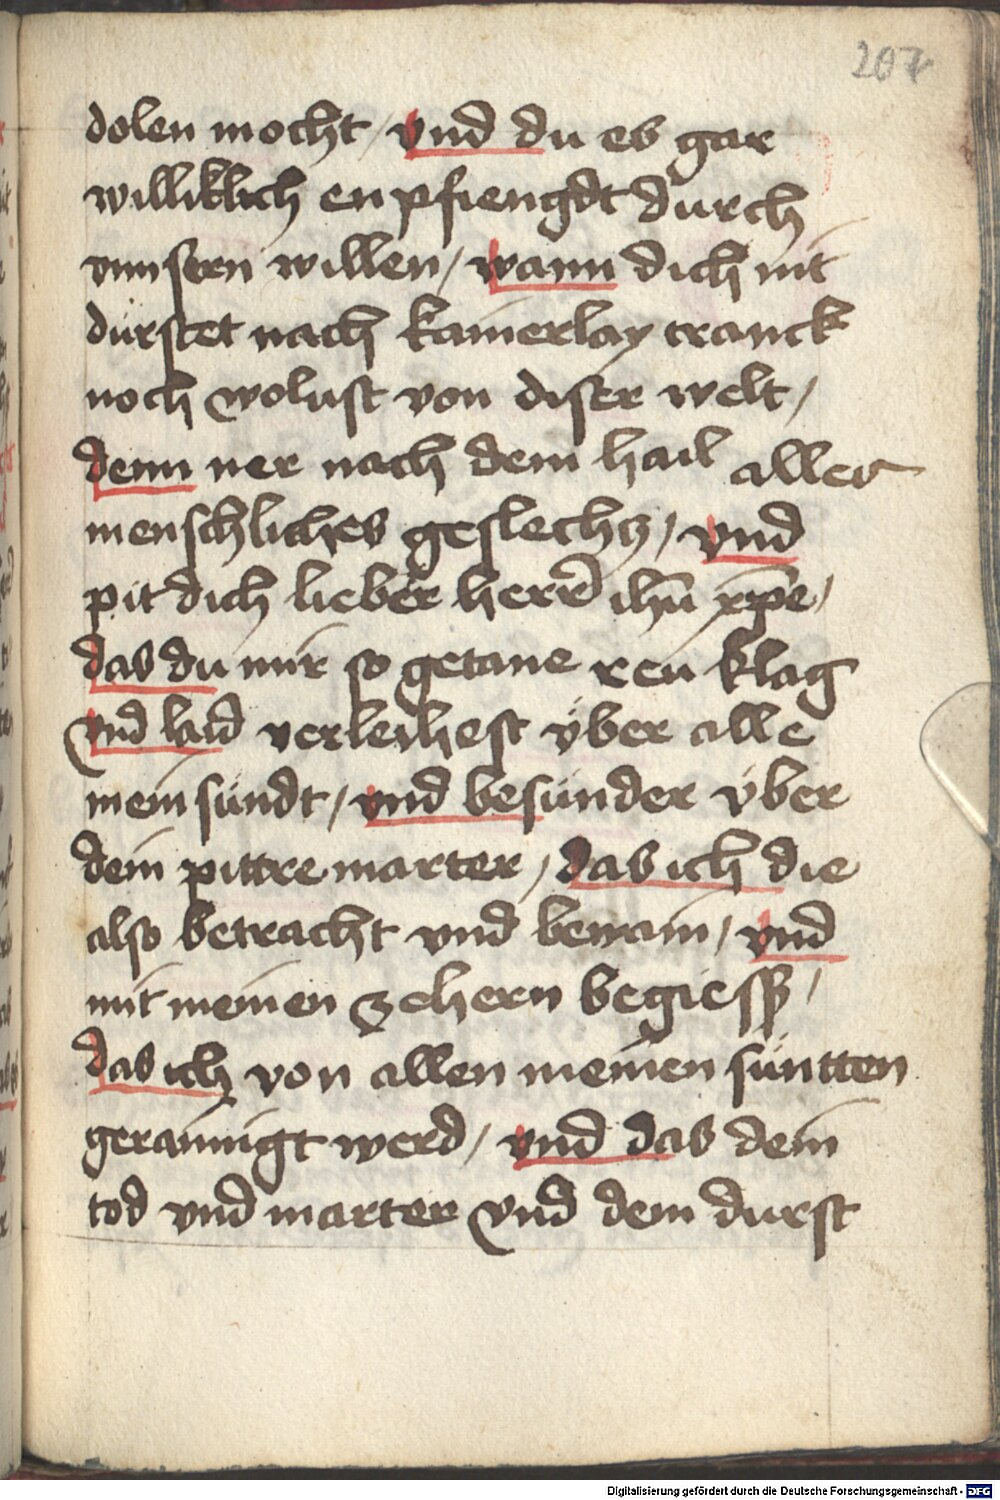 207
dolen mocht / vnd du es gar
williklich enpfiengdt durch
vnnsern willen / wann dich nit
dürstet nach kainerlay tranck
noch wolust von diser welt /
denn ner nach dem hail aller
menschliches geslechtz / vnd
pit dich lieber herr̄ ihū xp̄e /
das du mir so getane reü klag
vnd laid verleihest über alle
mein sündt / vnd besünder über
dein pittre marter / das ich die
also betracht vnd bewain / vnd
mit meinen zehern begiess /
das ich von allen meinen süntten
gerainigt werd / vnd das dein
tod vnd marter vnd dein durst
Digitalisierung gefördert durch die Deutsche Forschungsgemeinschaft - DFG